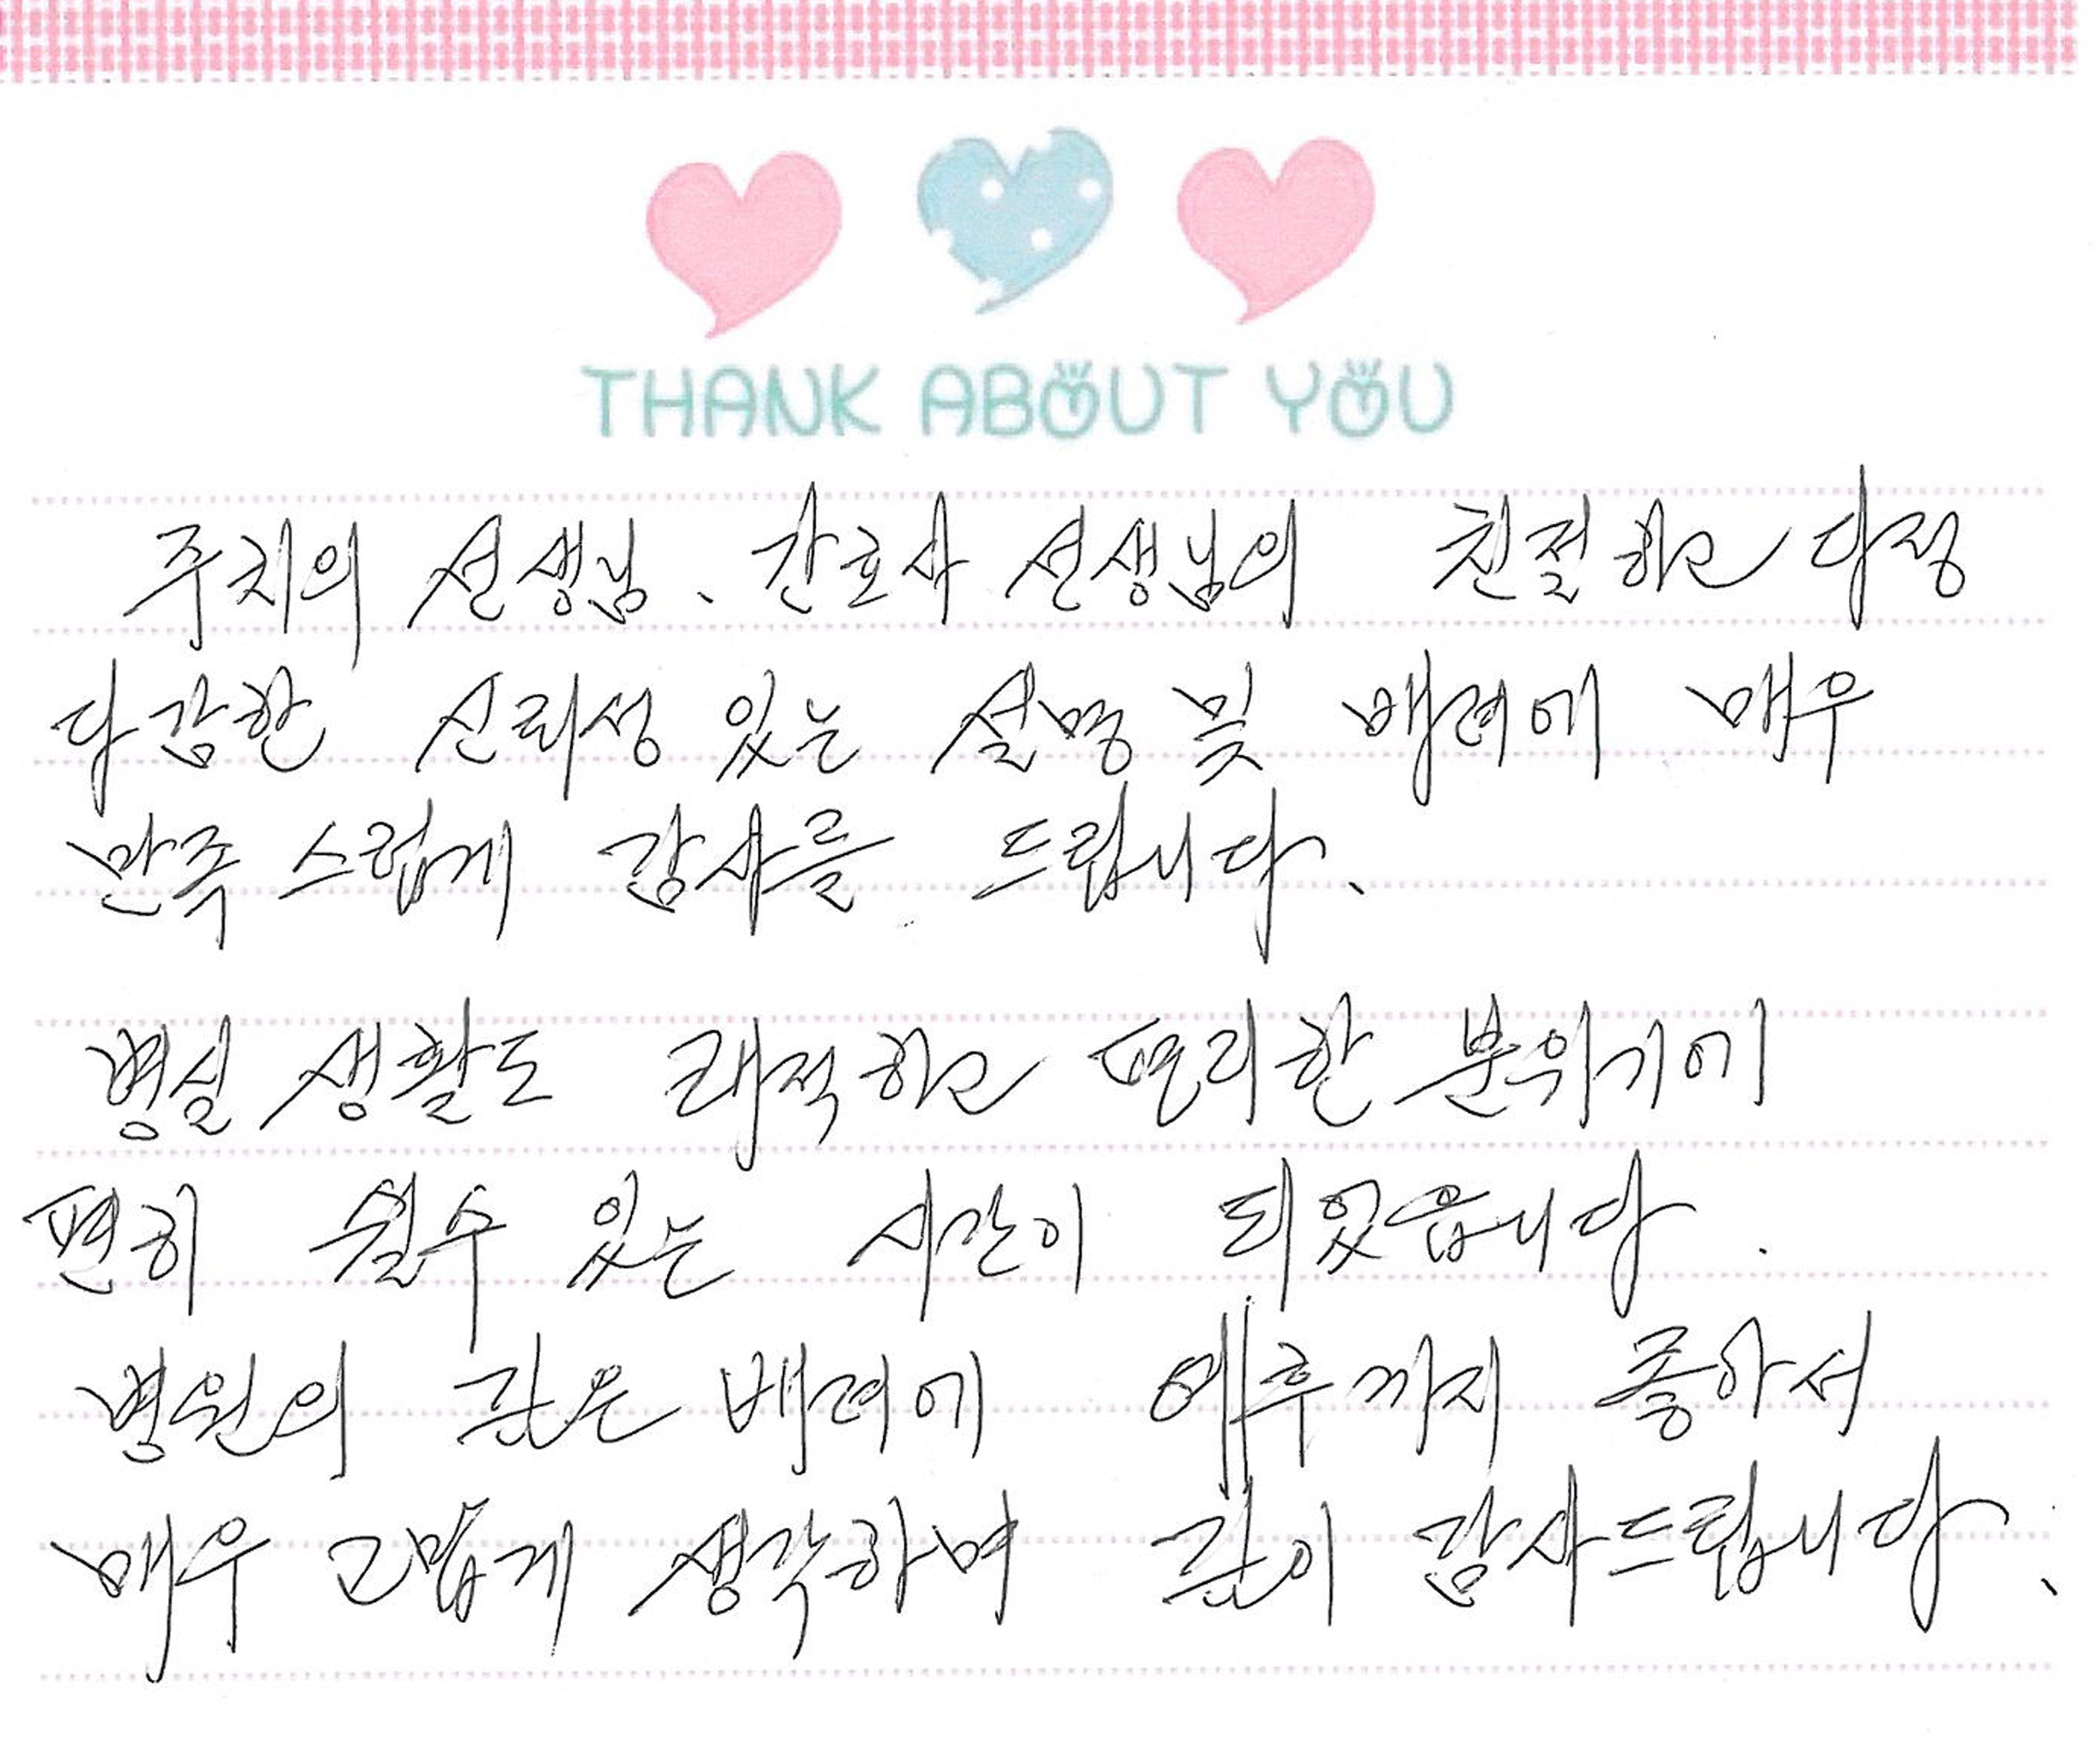 THANK ABOUT YOU
주치의 선생님、간호사 선생님의 친절하고 다정
다감한 신뢰성 있는 설명 및 배려에 매우
만족 스럽게 감사를 드립니다.
병실 생활도 쾌적하고 편리한 분위기에
편히 쉴수 있는 시간이 되었읍니다.
병원의 깊은 배려에 예후까지 좋아서
매우 고맙게 생각하며 깊이 감사드립니다.